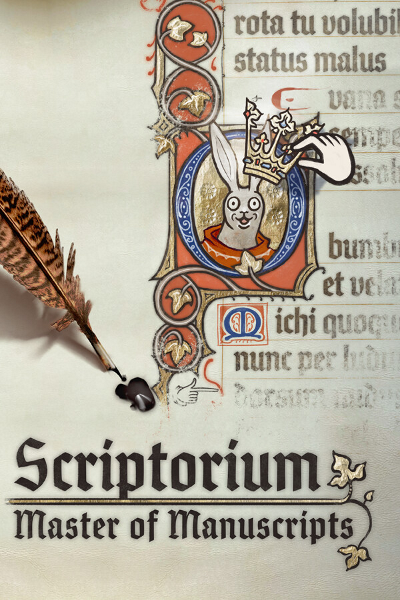 rota tu volubil
status malus
vana s
sempe
bumb
et vela
Michi quoqu
nunc per ludu
dorsum nud
Scriptorium
Master of Manuscripts